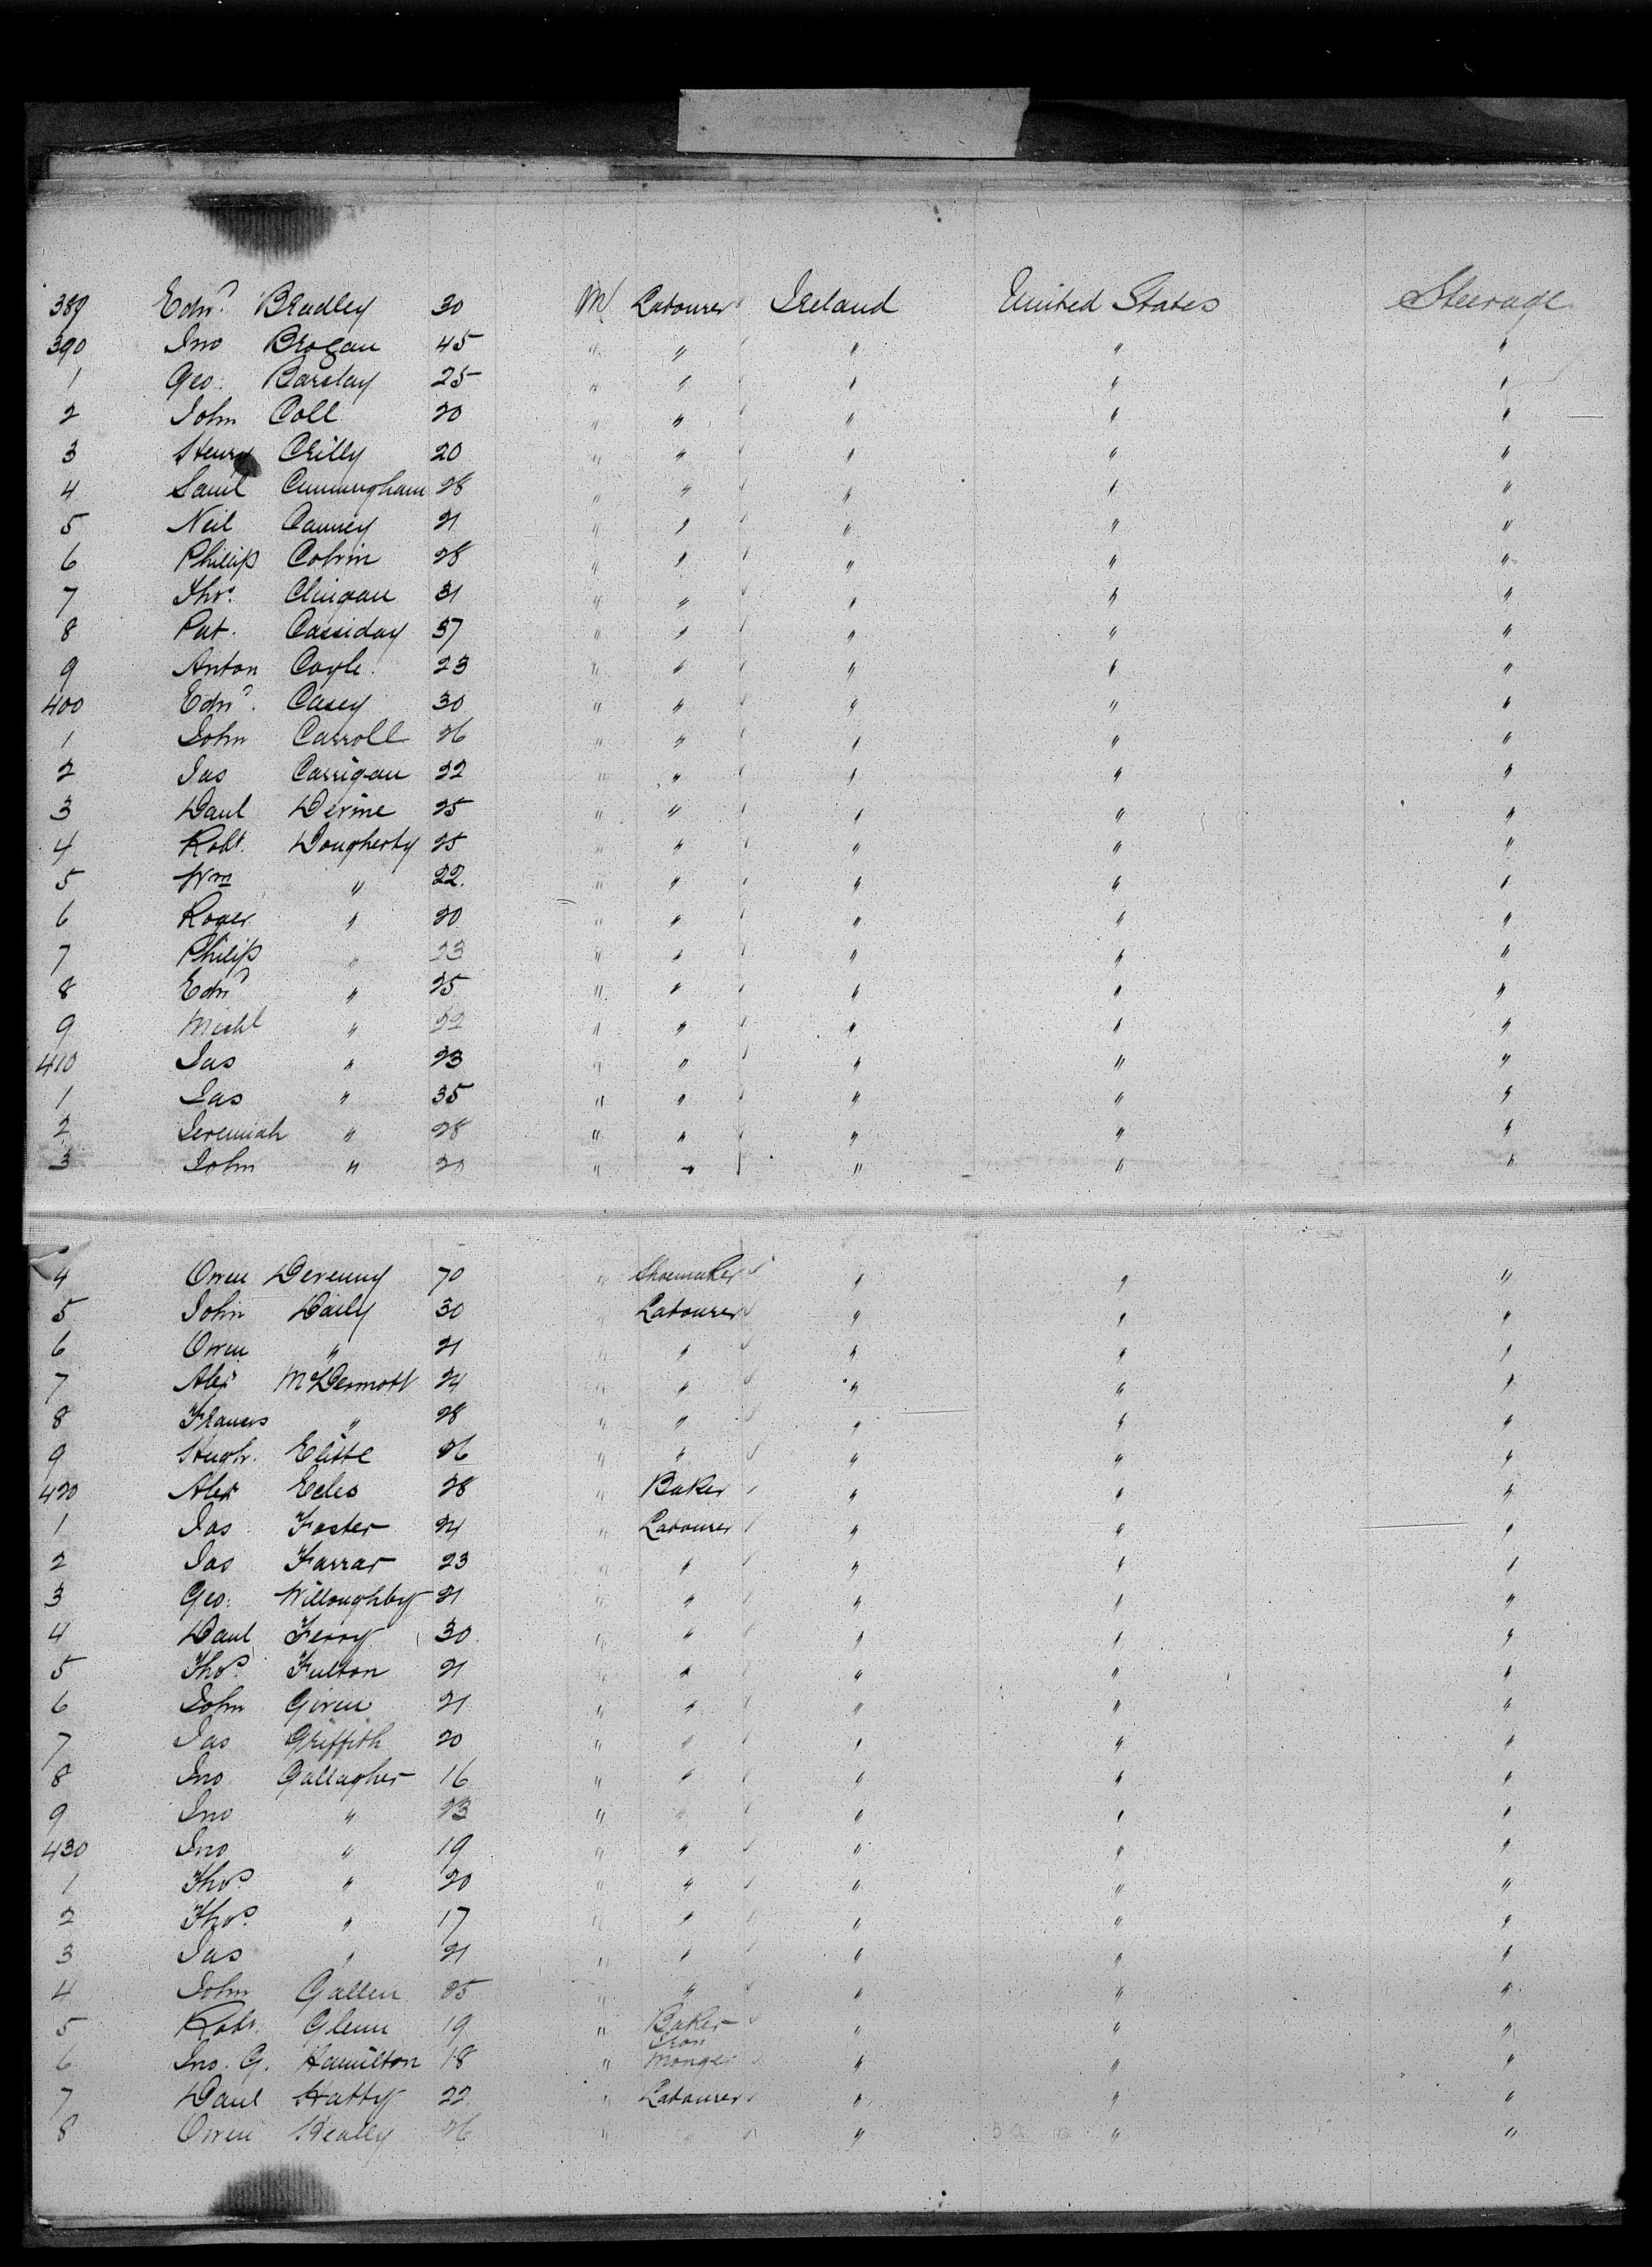 389 Edwd. Bradley 30 M Labourer Ireland United States Steerage
390 Jno Brogan 45 " " " " "
1 Geo. Barclay 25 " " " " "
2 John Coll 20 " " " " "
3 Henry Crilly 20 " " " " "
4 Saml Cunningham 28 " " " " "
5 Neil Canney 21 " " " " "
6 Philip Colvin 28 " " " " "
7 Thos. Clingan 31 " " " " "
8 Pat. Cassiday 37 " " " " "
9 Anton Coyle 23 " " " " "
400 Edwd. Casey 30 " " " " "
1 John Carroll 26 " " " " "
2 Jas Carrigan 22 " " " " "
3 Danl Devine 25 " " " " "
4 Robt. Dougherty 25 " " " " "
5 Wm " 22. " " " " "
6 Roger " 20 " " " " "
7 Philip " 23 " " " " "
8 Edwd " 25 " " " " "
9 Michl " 22 " " " " "
410 Jas " 23 " " " " "
1 Jas " 35 " " " " "
2 Jeremiah " 28 " " " " "
3 John " " " " " "
4 Owen Devenny 70 " Shoemaker " " "
5 John Daily 30 " Labourer " " "
6 Owen " 21 " " " " "
7 Alexr McDermott 24 " " " " "
8 Francis " 28 " " " " "
9 Hugh. 26 " " " " "
420 Alexr Ecles 28 " Baker " " "
1 Jas Foster 24 " Labourer " " "
2 Jas Farrar 23 " " " " "
3 Geo. Willoughby 21 " " " " "
4 Danl Ferry 30 " " " " "
5 Thos. Fulton 21 " " " " "
6 John Given 21 " " " " "
7 Jas Griffith 20 " " " " "
8 Jno Gallagher 16 " " " " "
9 Jno " 23 " " " " "
430 Jno " 19 " " " " "
1 Thos. " 20 " " " " "
2 Thos. " 17 " " " " "
3 Jas " 21 " " " " "
4 John Gallen 25 " " " " "
5 Robt. Glenn 19 " Baker " " "
6 Jno. G. Hamilton 18 " Iron Monger " " "
7 Danl Hatty 22 " Labourer " " "
8 Owen Healey 26 " " " " "